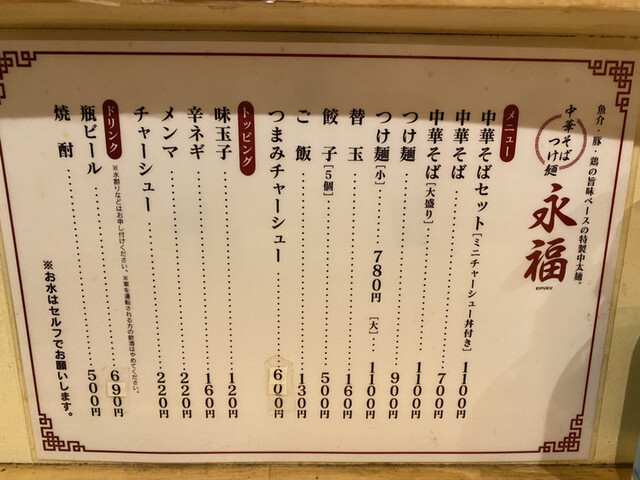 魚介・豚・鶏の旨味ベースの特製中太麺。
中華そば
つけ麺
永福
EIFUKU
メニュー
中華そばセット[ミニチャーシュー丼付き] 1100円
中華そば 700円
中華そば[大盛り] 1100円
つけ麺 900円
つけ麺[小] 780円 [大] 1100円
替玉 160円
餃子[5個] 500円
ご飯 130円
つまみチャーシュー 600円
トッピング
味玉子 120円
辛ネギ 160円
メンマ 220円
チャーシュー 220円
ドリンク
※水割りなどはお申し付けください。※車を運転される方の飲酒はやめてください。
瓶ビール 690円
焼酎 500円
※お水はセルフでお願いします。